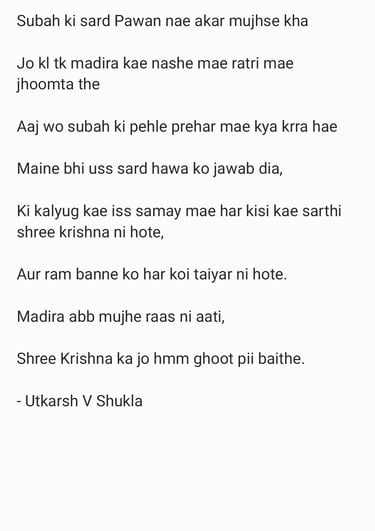 Subah ki sard Pawan nae akar mujhse kha
Jo kl tk madira kae nashe mae ratri mae
jhoomta the
Aaj wo subah ki pehle prehar mae kya krra hae
Maine bhi uss sard hawa ko jawab dia,
Ki kalyug kae iss samay mae har kisi kae sarthi
shree krishna ni hote,
Aur ram banne ko har koi taiyar ni hote.
Madira abb mujhe raas ni aati,
Shree Krishna ka jo hmm ghoot pii baithe.
- Utkarsh V Shukla